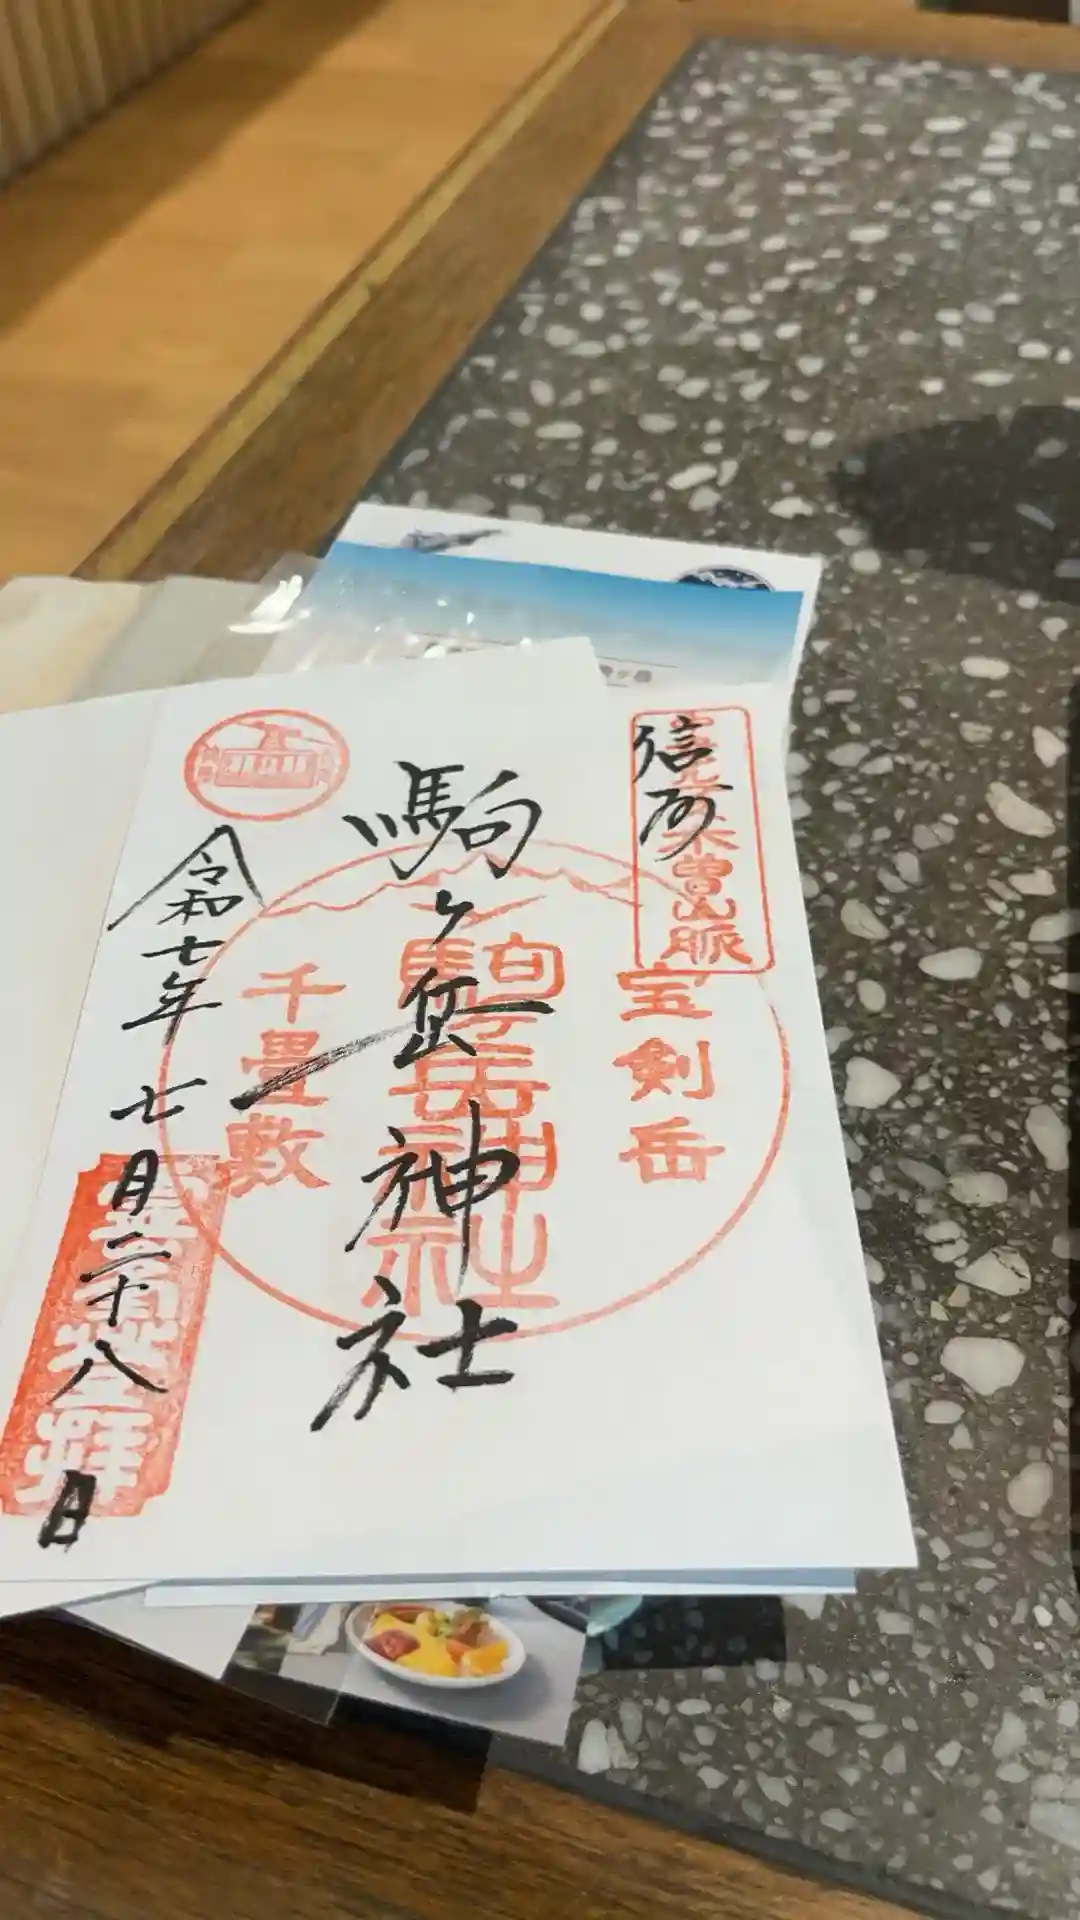 信州
木曽山脈
宝剣岳
駒ヶ岳神社
駒ヶ岳神社
千畳敷
令和七年 七月二十八日
登拝